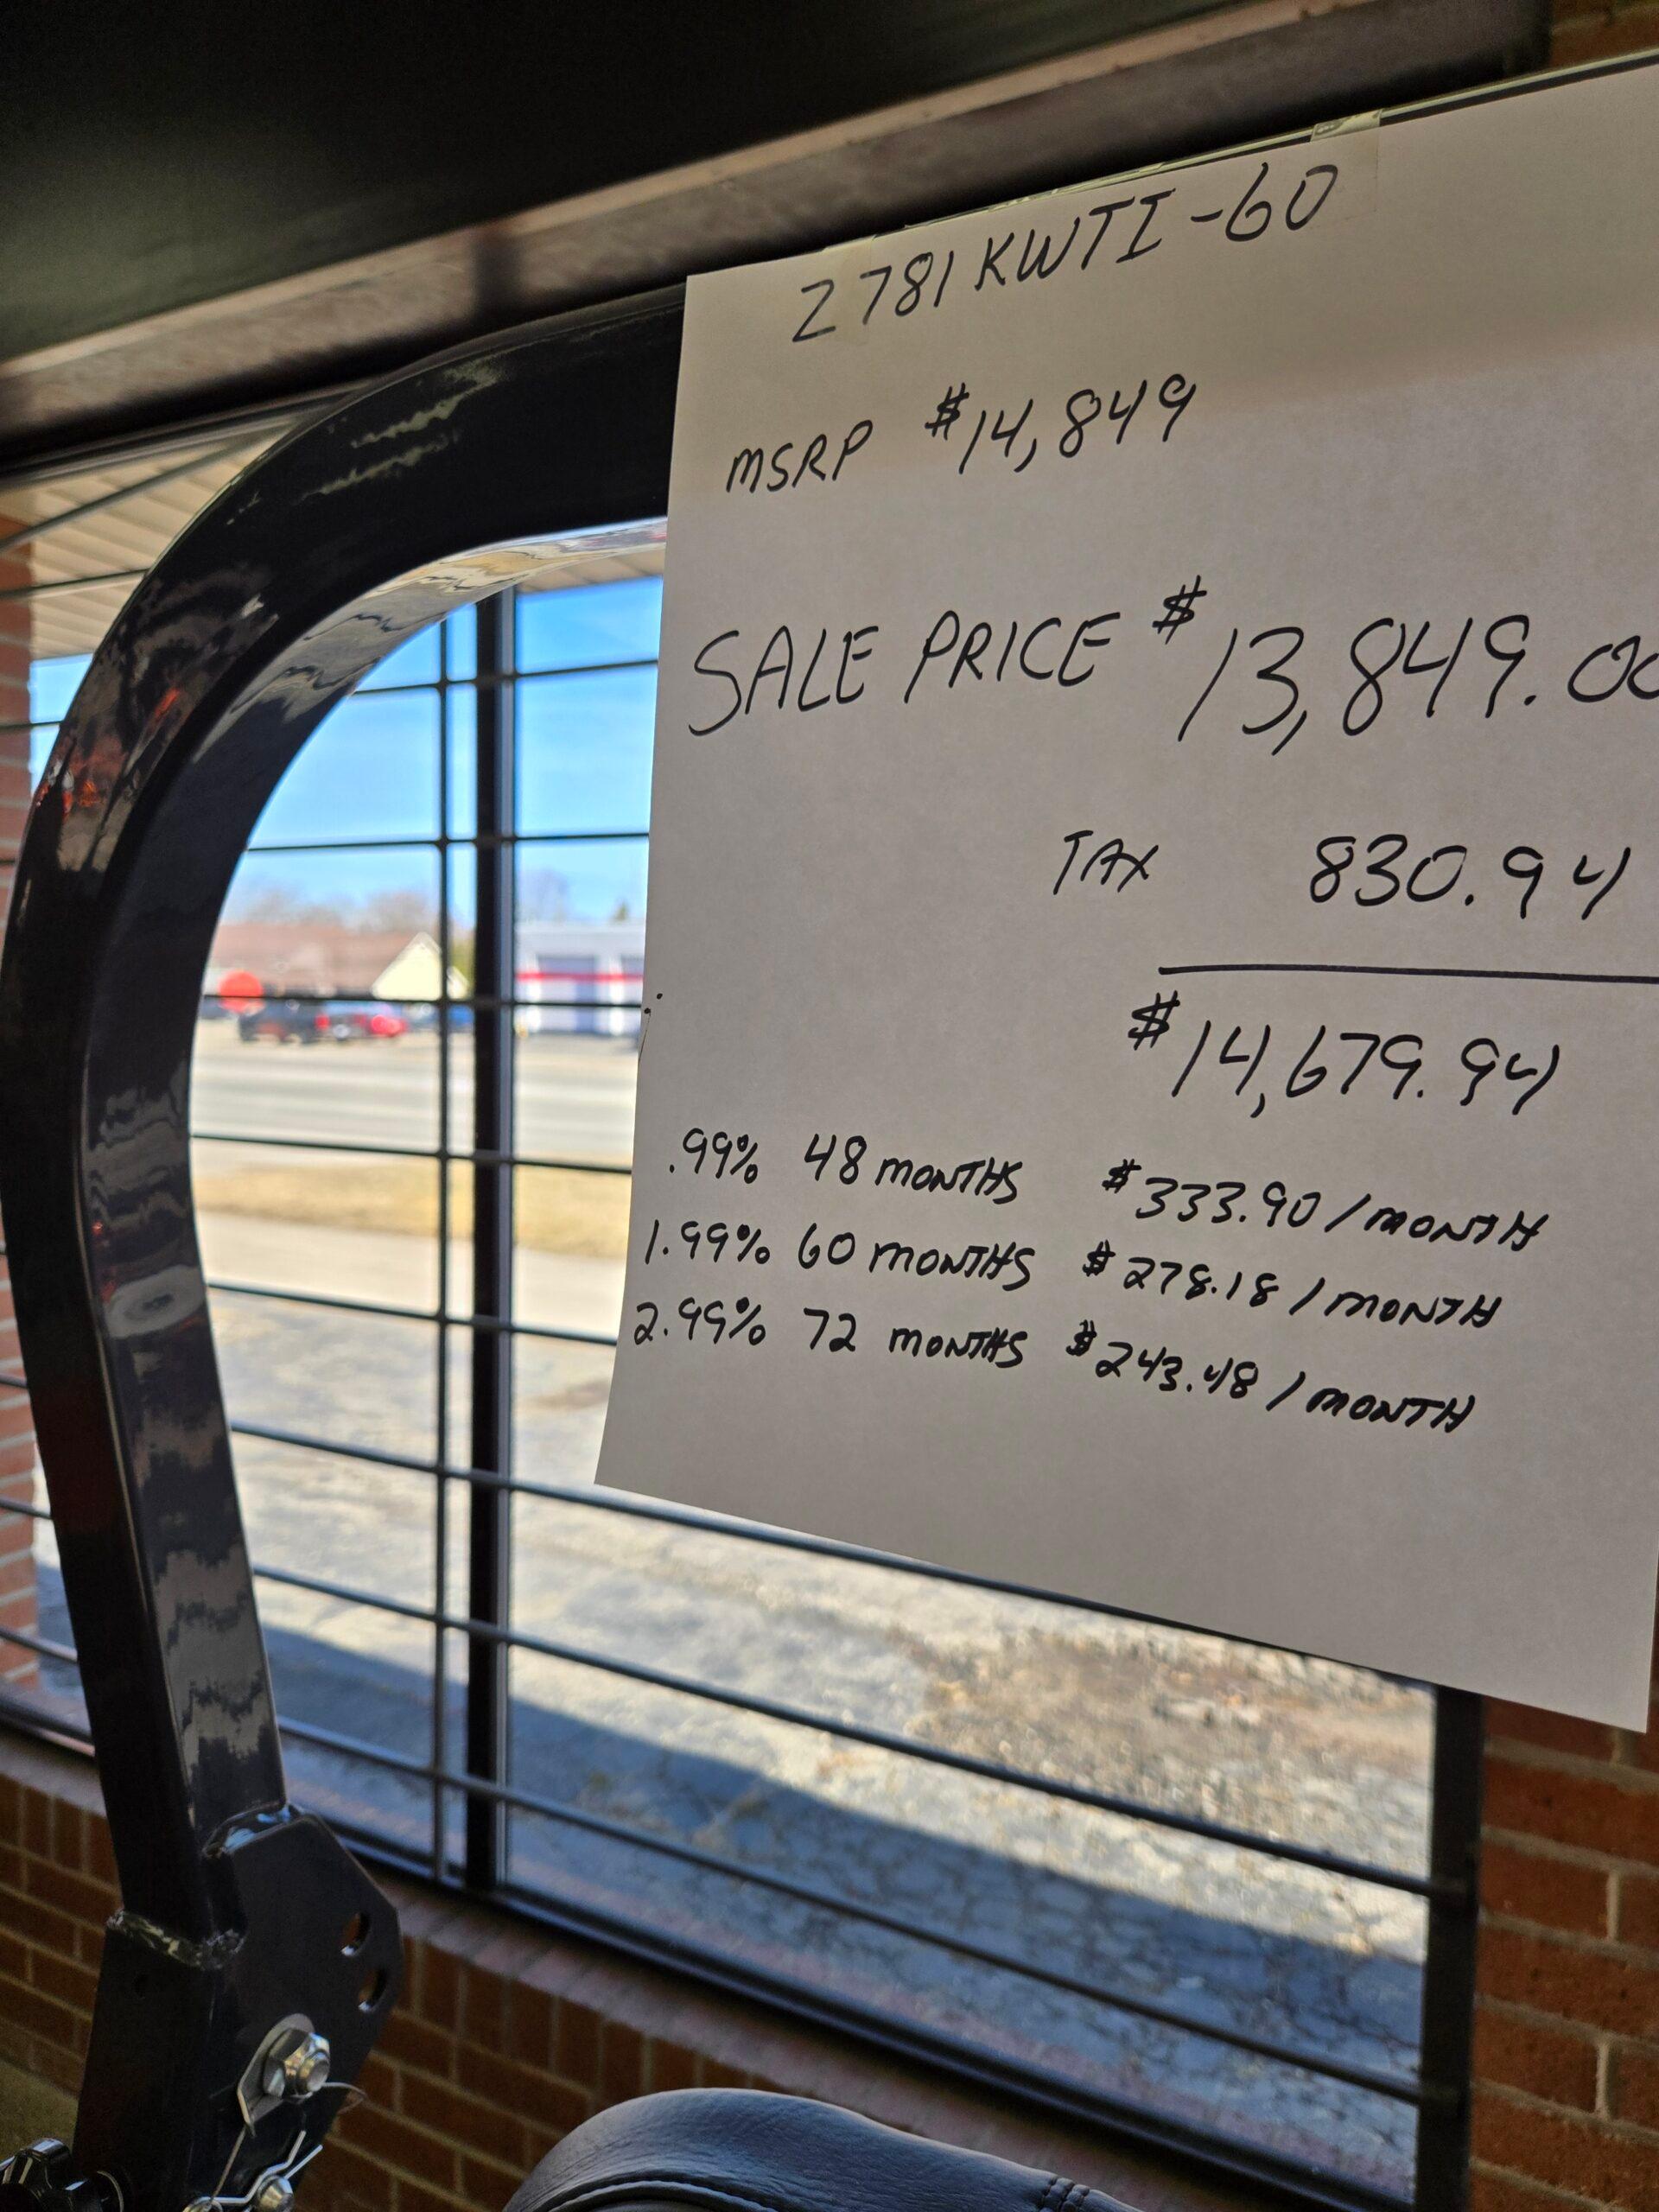 Z781KWTI-60
MSRP $14,849
SALE PRICE $13,849.00
TAX 830.94
$14,679.94
.99% 48 MONTHS $333.90/MONTH
1.99% 60 MONTHS $278.18/MONTH
2.99% 72 MONTHS $243.48/MONTH